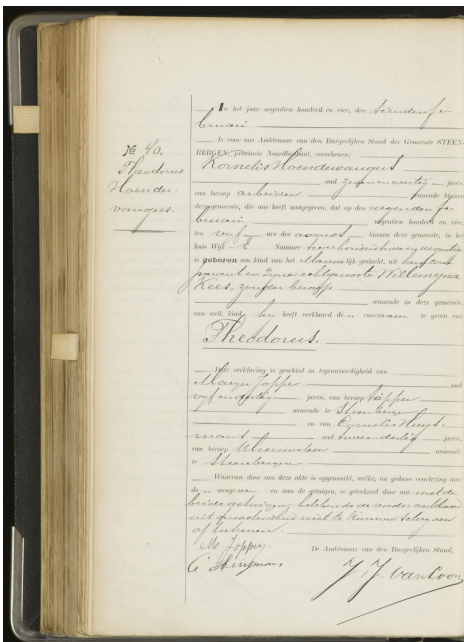 No 40.
Theodorus
Hoender-
vangers.
In het jaar negentien honderd en vier, den tienden fe-
bruari
is voor ons Ambtenaar van den Burgerlijken Stand der Gemeente STEEN-
BERGEN, provincie Noordbrabant, verschenen:
Kornelis Hoendervangers
oud jaren,
van beroep arbeider wonende binnen
deze gemeente, die ons heeft aangegeven, dat op den negenden fe-
bruari negentien honderd en vier,
ten vijf ure des avonds binnen deze gemeente, in het
huis Wijk E Nummer tweehonderd twee en negentig
is geboren een kind van het Mannelijk geslacht, uit hem com-
parant en zijne echtgenoote Willemijna
Kees, zonder beroep
wonende in deze gemeente,
aan welk kind hij heeft verklaard den voornaam te geven van
Theodorus.
Deze verklaring is geschied in tegenwoordigheid van
Marijn Joppe oud
vijf en jaren, van beroep tapper
wonende te Steenbergen
en van Cornelis
oud jaren,
van beroep wonende
te Steenbergen
Waarvan door ons deze akte is opgemaakt, welke, na gedane voorlezing aan
den aangever en aan de getuigen, is geteekend door ons met de
beide getuigen, hebbende de vader verklaard
uit ongeleerdheid niet te kunnen schrijven
of teekenen.
M Joppe
C
De Ambtenaar van den Burgerlijken Stand,
J. J. van Loon